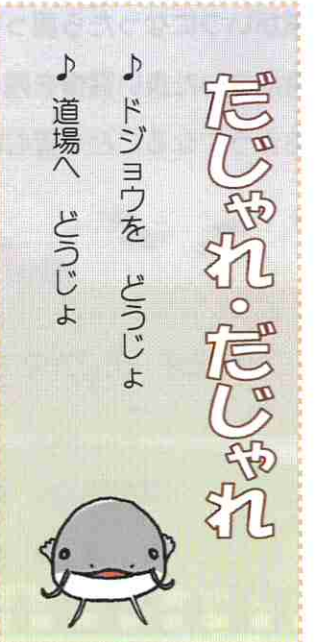 だじゃれ・だじゃれ
♪ ドジョウを どうじょ
♪ 道場へ どうじょ